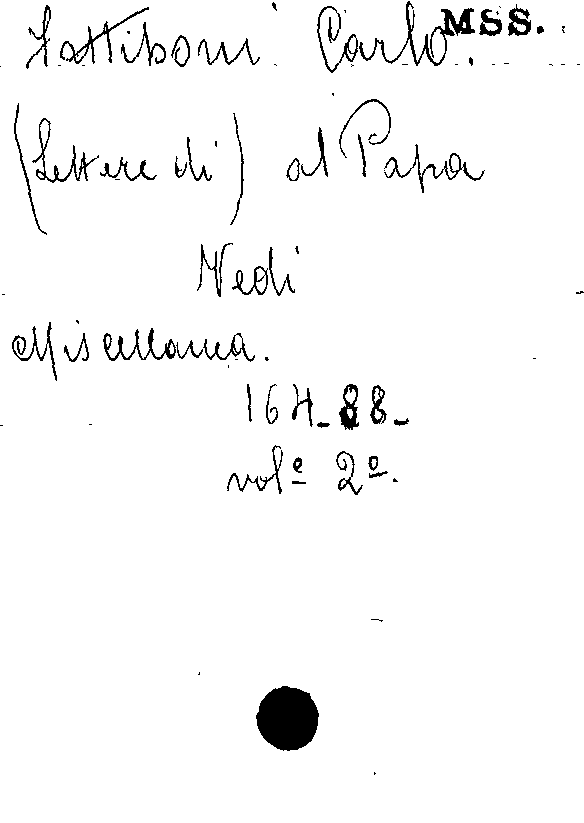 Fattiboni Carlo. MSS.
(Lettere di) al Papa
Vedi
Miscellanea.
164-88-
vol.e 2º.